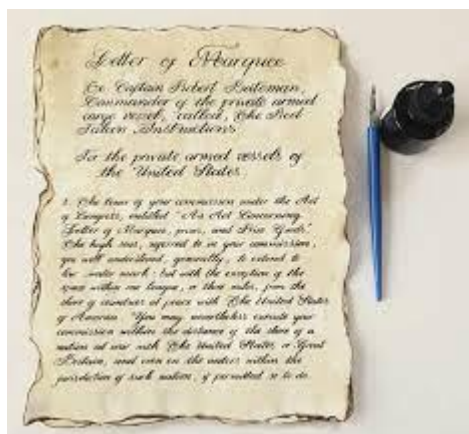 Letter of Marquee
To Captain Robert Bateman,
Commander of the private armed
cargo vessel, called, The Red
Talon Instructions
For the private armed vessels of
the United States
1. The tenor of your commission under the Act
of Congress, entitled "An Act Concerning
Letter of Marque, prizes, and Prize Goods."
The high seas, referred to in your commission,
you will understand, generally, to extend to
low water mark; but with the exception of the
space within one league, or three miles, from the
shore of countries at peace with The United States
of America. You may nevertheless execute your
commission within the distance of the shore of a
nation at war with The United States, or Great
Britain, and even on the waters within the
jurisdiction of such nation, if permitted so to do.